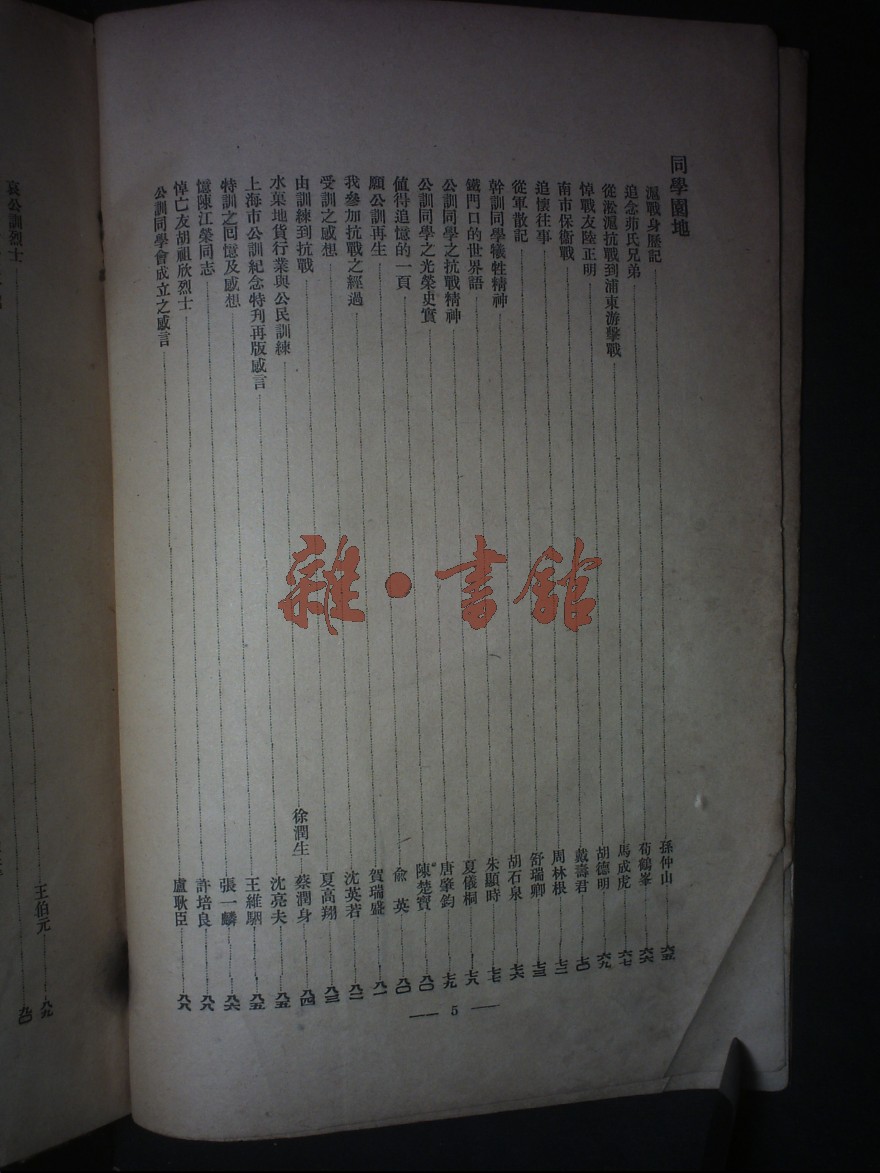 同學園地
滬戰身歷記 孫仲山 六五
追念茆氏兄弟 荀鶴峯 六六
從淞滬抗戰到浦東游擊戰 馬成虎 六七
悼戰友陸正明 胡德明 六九
南市保衞戰 戴壽君 七〇
追懷往事 周林根 七二
從軍散記 舒瑞卿 七三
幹訓同學犧牲精神 胡石泉 七六
鐵門口的世界語 朱顯時 七七
公訓同學之抗戰精神 夏儀桐 七八
公訓同學之光榮史實 唐肇鈞 七九
值得追憶的一頁 陳楚寶 八〇
願公訓再生 俞英 八〇
我參加抗戰之經過 賀瑞盛 八一
受訓之感想 沈英若 八二
由訓練到抗戰 夏高翔 八三
水菓地貨行業與公民訓練 徐潤生 蔡潤身 八四
上海市公訓紀念特刊再版感言 沈亮夫 八五
特訓之回憶及感想 王維駰 八五
憶陳江榮同志 張一麟 八六
悼亡友胡祖欣烈士 許培良 八八
公訓同學會成立之感言 盧耿臣 八八
— 5 —
王伯元 八九
哀公訓烈士 九〇
雜·書館